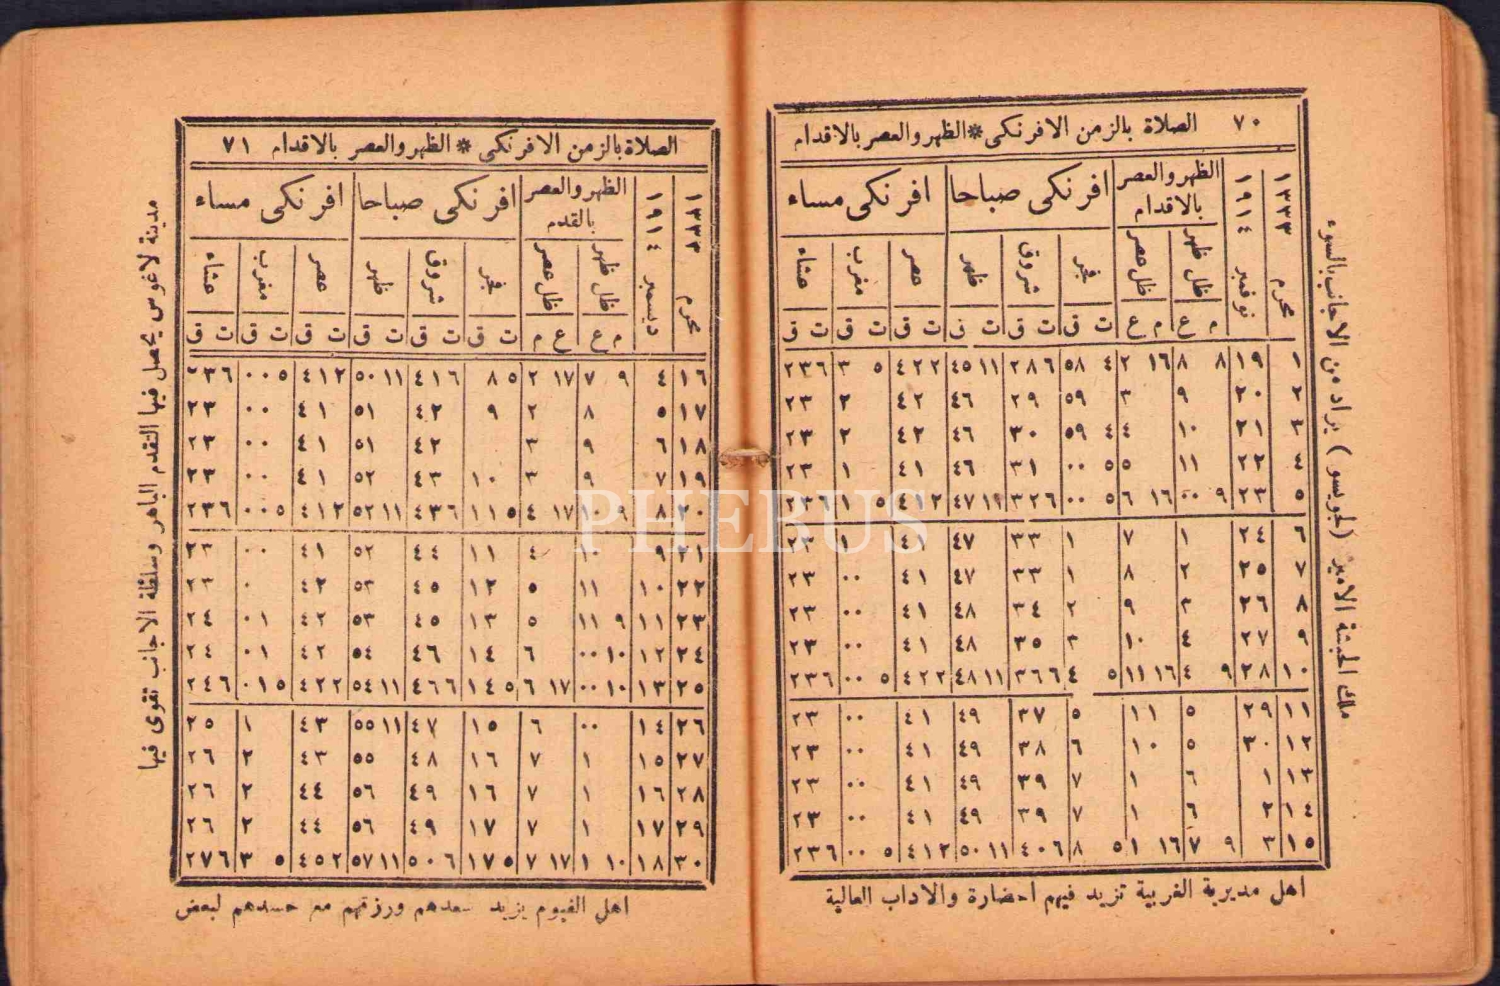 ٧٠ الصلاة بالزمن الافرنكى * الظهر والعصر بالاقدام
١٣٣٣ محرم
١٩١٤ نوفمبر
الظهر والعصر بالاقدام
افرنكى صباحا
افرنكى مساء
ظل ظهر
ظل عصر
فجر
شروق
ظهر
عصر
مغرب
عشاء
م ع م ع ت ق ت ق ت ق ت ق ت ق ت ق
١ ١٩ ٨ ٨ ١٦ ٢ ٤ ٥٨ ٦ ٢٨ ١١ ٤٥ ٢ ٤٢ ٥ ٣ ٦ ٢٣
٢ ٢٠ ٩ ٣ ٥٩ ٢٩ ٤٦ ٤٢ ٢ ٢٣
٣ ٢١ ١٠ ٤ ٤ ٥٩ ٣٠ ٤٦ ٤٢ ٢ ٢٣
٤ ٢٢ ١١ ٥ ٥ ٠٠ ٣١ ٤٦ ٤١ ١ ٢٣
٥ ٢٣ ٩ ٠٠ ١٦ ٦ ٥ ٠٠ ٦ ٣٢ ١١ ٤٧ ٢ ٤١ ٥ ١ ٦ ٢٣
٦ ٢٤ ١ ٧ ١ ٣٣ ٤٧ ٤١ ١ ٢٣
٧ ٢٥ ٢ ٨ ١ ٣٣ ٤٧ ٤١ ٠٠ ٢٣
٨ ٢٦ ٣ ٩ ٢ ٣٤ ٤٨ ٤١ ٠٠ ٢٣
٩ ٢٧ ٤ ١٠ ٣ ٣٥ ٤٨ ٤١ ٠٠ ٢٣
١٠ ٢٨ ٩ ٤ ١٦ ١١ ٥ ٤ ٦ ٣٦ ١١ ٤٨ ٢ ٤٢ ٥ ٠٠ ٦ ٢٣
١١ ٢٩ ٥ ١١ ٥ ٣٧ ٤٩ ٤١ ٠٠ ٢٣
١٢ ٣٠ ٥ ١٠ ٦ ٣٨ ٤٩ ٤١ ٠٠ ٢٣
١٣ ١ ٦ ١ ٧ ٣٩ ٤٩ ٤١ ٠٠ ٢٣
١٤ ٢ ٦ ١ ٧ ٣٩ ٤٩ ٤١ ٠٠ ٢٣
١٥ ٣ ٩ ٧ ١٦ ١ ٥ ٨ ٦ ٤٠ ١١ ٥٠ ٢ ٤١ ٥ ٠٠ ٦ ٢٣
اهل مديرية الغربية تزيد فيهم احضارة والاداب العالية
ملك الحبشة الامير (لجويسو) يراد من الاجانب بالسوء
الصلاة بالزمن الافرنكى * الظهر والعصر بالاقدام ٧١
١٣٣٣ محرم
١٩١٤ ديسمبر
الظهر والعصر بالقدم
افرنكى صباحا
افرنكى مساء
ظل ظهر
ظل عصر
فجر
شروق
ظهر
عصر
مغرب
عشاء
م ع ع م ت ق ت ق ت ق ت ق ت ق ت ق
١٦ ٤ ٩ ٧ ١٧ ٢ ٥ ٨ ٦ ٤١ ١١ ٥٠ ٢ ٤١ ٥ ٠٠ ٦ ٢٣
١٧ ٥ ٨ ٢ ٩ ٤٢ ٥١ ٤١ ٠٠ ٢٣
١٨ ٦ ٩ ٣ ٤٢ ٥١ ٤١ ٠٠ ٢٣
١٩ ٧ ٩ ٣ ١٠ ٤٣ ٥٢ ٤١ ٠٠ ٢٣
٢٠ ٨ ٩ ١٠ ١٧ ٤ ٥ ١١ ٦ ٤٣ ١١ ٥٢ ٢ ٤١ ٥ ٠٠ ٦ ٢٣
٢١ ٩ ١٠ ٤ ١١ ٤٤ ٥٢ ٤١ ٠٠ ٢٣
٢٢ ١٠ ١١ ٥ ١٢ ٤٥ ٥٣ ٤٢ ٠ ٢٣
٢٣ ١١ ٩ ١١ ٥ ١٣ ٤٥ ٥٣ ٤٢ ٠١ ٢٤
٢٤ ١٢ ١٠ ٠٠ ٦ ١٤ ٤٦ ٥٤ ٤٢ ٠١ ٢٤
٢٥ ١٣ ١٠ ٠٠ ١٧ ٦ ٥ ١٤ ٦ ٤٦ ١١ ٥٤ ٢ ٤٢ ٥ ٠١ ٦ ٢٤
٢٦ ١٤ ٠٠ ٦ ١٥ ٤٧ ١١ ٥٥ ٤٣ ١ ٢٥
٢٧ ١٥ ١ ٧ ١٦ ٤٨ ٥٥ ٤٣ ٢ ٢٦
٢٨ ١٦ ١ ٧ ١٦ ٤٩ ٥٦ ٤٤ ٢ ٢٦
٢٩ ١٧ ١ ٧ ١٧ ٤٩ ٥٦ ٤٤ ٢ ٢٦
٣٠ ١٨ ١٠ ١ ١٧ ٧ ٥ ١٧ ٦ ٥٠ ١١ ٥٧ ٢ ٤٥ ٥ ٣ ٦ ٢٧
اهل الفيوم يزيد سعدهم ورزقهم مع حسدهم لبعض
مدينة لاغوس يحصل فيها التقدم الباهر وسلطة الاجانب تقوى فيها
PHEBUS